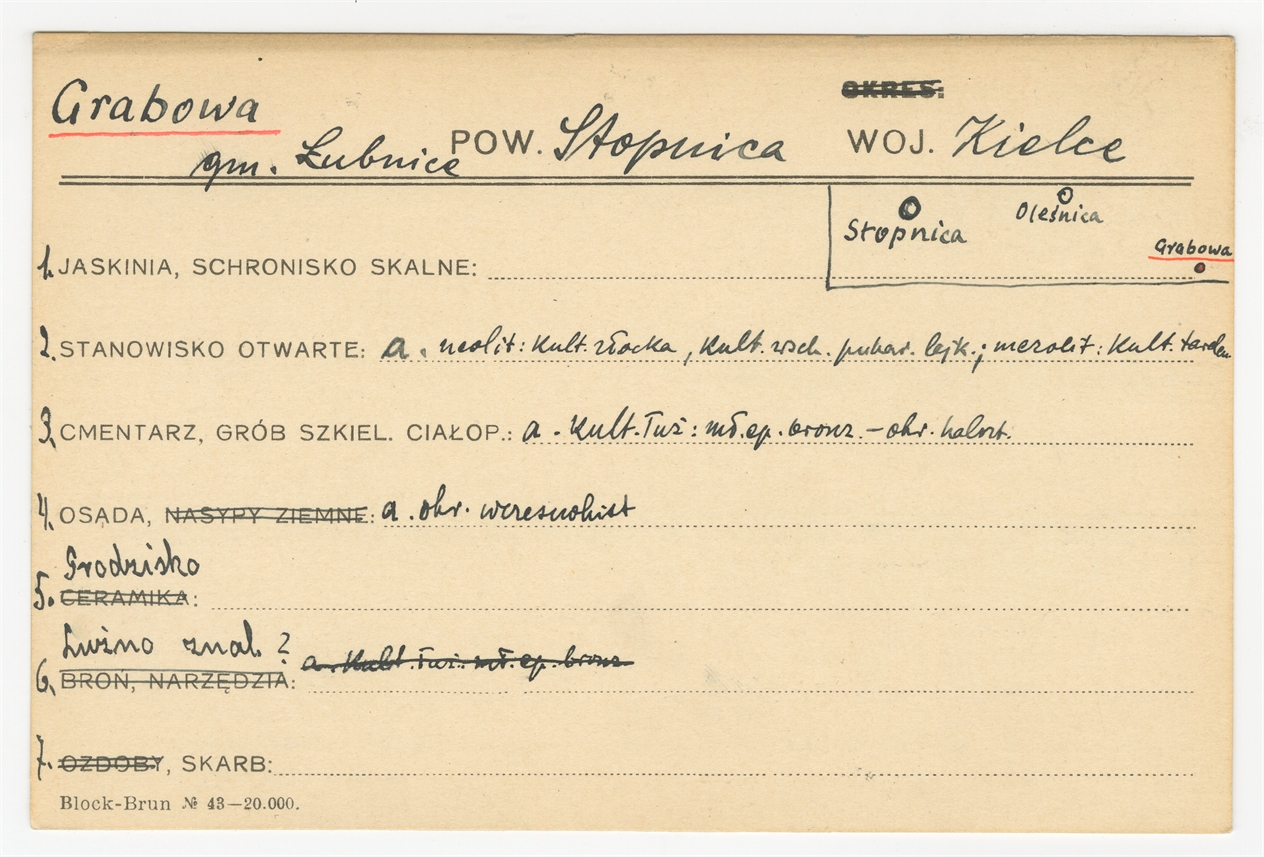 Grabowa
OKRES:
gm. Łubnice POW. Stopnica WOJ. Kielce
Stopnica Oleśnica
Grabowa
1. JASKINIA, SCHRONISKO SKALNE:
2. STANOWISKO OTWARTE: a. neolit: Kult. złocka, Kult. wsch. puhar. lejk.; mezolit: Kult. tarden
3. CMENTARZ, GRÓB SZKIEL. CIAŁOP.: a. Kult. łuż: mł. ep. bronz. – okr. halszt.
4. OSADA, NASYPY ZIEMNE: a. okr. wczesnohist
Grodzisko
5. CERAMIKA:
Luźno znal. ?
6. BROŃ, NARZĘDZIA: a. Kult. łuż: mł. ep. bronz
7. OZDOBY, SKARB:
Block-Brun № 43—20.000.